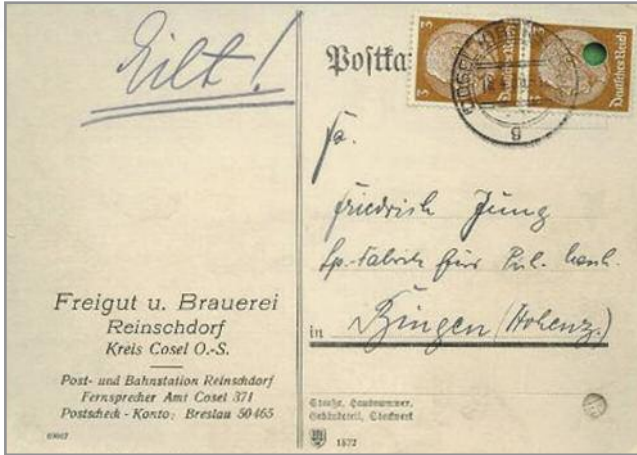 Eilt!
Postka
3
3
Deutsches Reich
Deutsches Reich
COSEL
Fa.
Friedrich Jung
Sp. Fabrik für
in Bingen (Hohenz.)
Freigut u. Brauerei
Reinschdorf
Kreis Cosel O.-S.
Post- und Bahnstation Reinschdorf
Fernsprecher Amt Cosel 371
Postscheck - Konto: Breslau 50465
Straße, Hausnummer,
Gebäudeteil, Stockwerk
1572